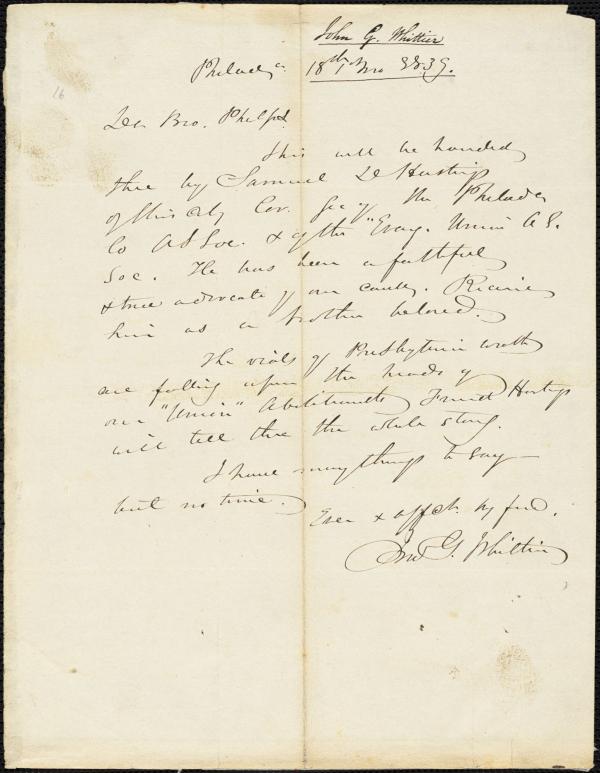 John G. Whittier
Philada. 18th 1st Mo 1839.
16
Dear Bro. Phelps!
This will be handed
thee by Samuel D Hastings
of this city Cor. Sec of the Philada
Co A S Soc. & of the "Evang. Union A. S.
Soc. He has been a faithful
& true advocate of our cause. Receive
him as a brother beloved.
The vials of Presbyterian wrath
are falling upon the heads of
our "Union" Abolitionists. Friend Hastings
will tell thee the whole story.
I have many things to say—
but no time.
Ever & affect. thy frd.
Jno G. Whittier